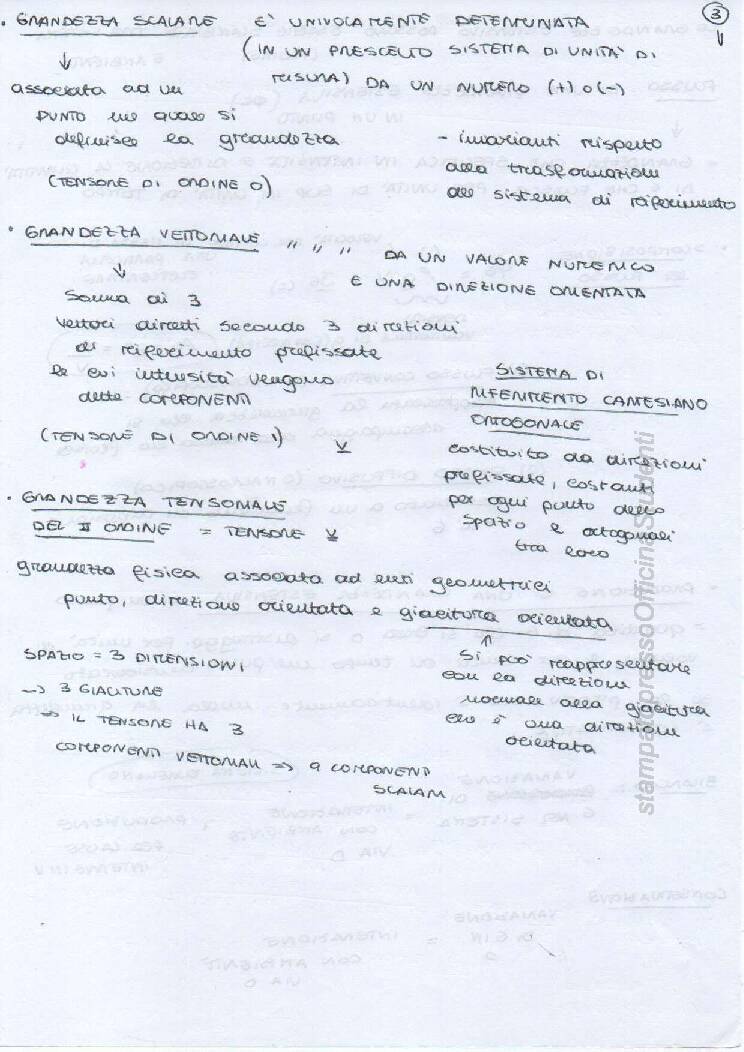 3
• GRANDEZZA SCALARE È UNIVOCAMENTE DETERMINATA
(IN UN PRESCELTO SISTEMA DI UNITÀ DI
MISURA) DA UN NUMERO (+) O (-)
↓
associata ad un
PUNTO nel quale si
definisce la grandezza
(TENSORE DI ORDINE 0)
- invarianti rispetto
alla trasformazioni
del sistema di riferimento
• GRANDEZZA VETTORIALE " " " DA UN VALORE NUMERICO
E UNA DIREZIONE ORIENTATA
↓
Somma di 3
vettori diretti secondo 3 direzioni
di riferimento prefissate
le cui intensità vengono
dette COMPONENTI
(TENSORE DI ORDINE 1) v
SISTEMA DI
RIFERIMENTO CARTESIANO
ORTOGONALE
costituito da direzioni
prefissate, costanti
per ogni punto dello
spazio e ortogonali
tra loro
• GRANDEZZA TENSORIALE
DEL II ORDINE = TENSORE v
grandezza fisica associata ad enti geometrici
punto, direzione orientata e giacitura orientata
↑
Si può rappresentare
con la direzione
normale alla giacitura
che è una direzione
orientata
SPAZIO = 3 DIMENSIONI
→ 3 GIACITURE
→ IL TENSORE HA 3
COMPONENTI VETTORIALI ⇒ 9 COMPONENTI
SCALARI
stampatopressoOfficinaStudenti